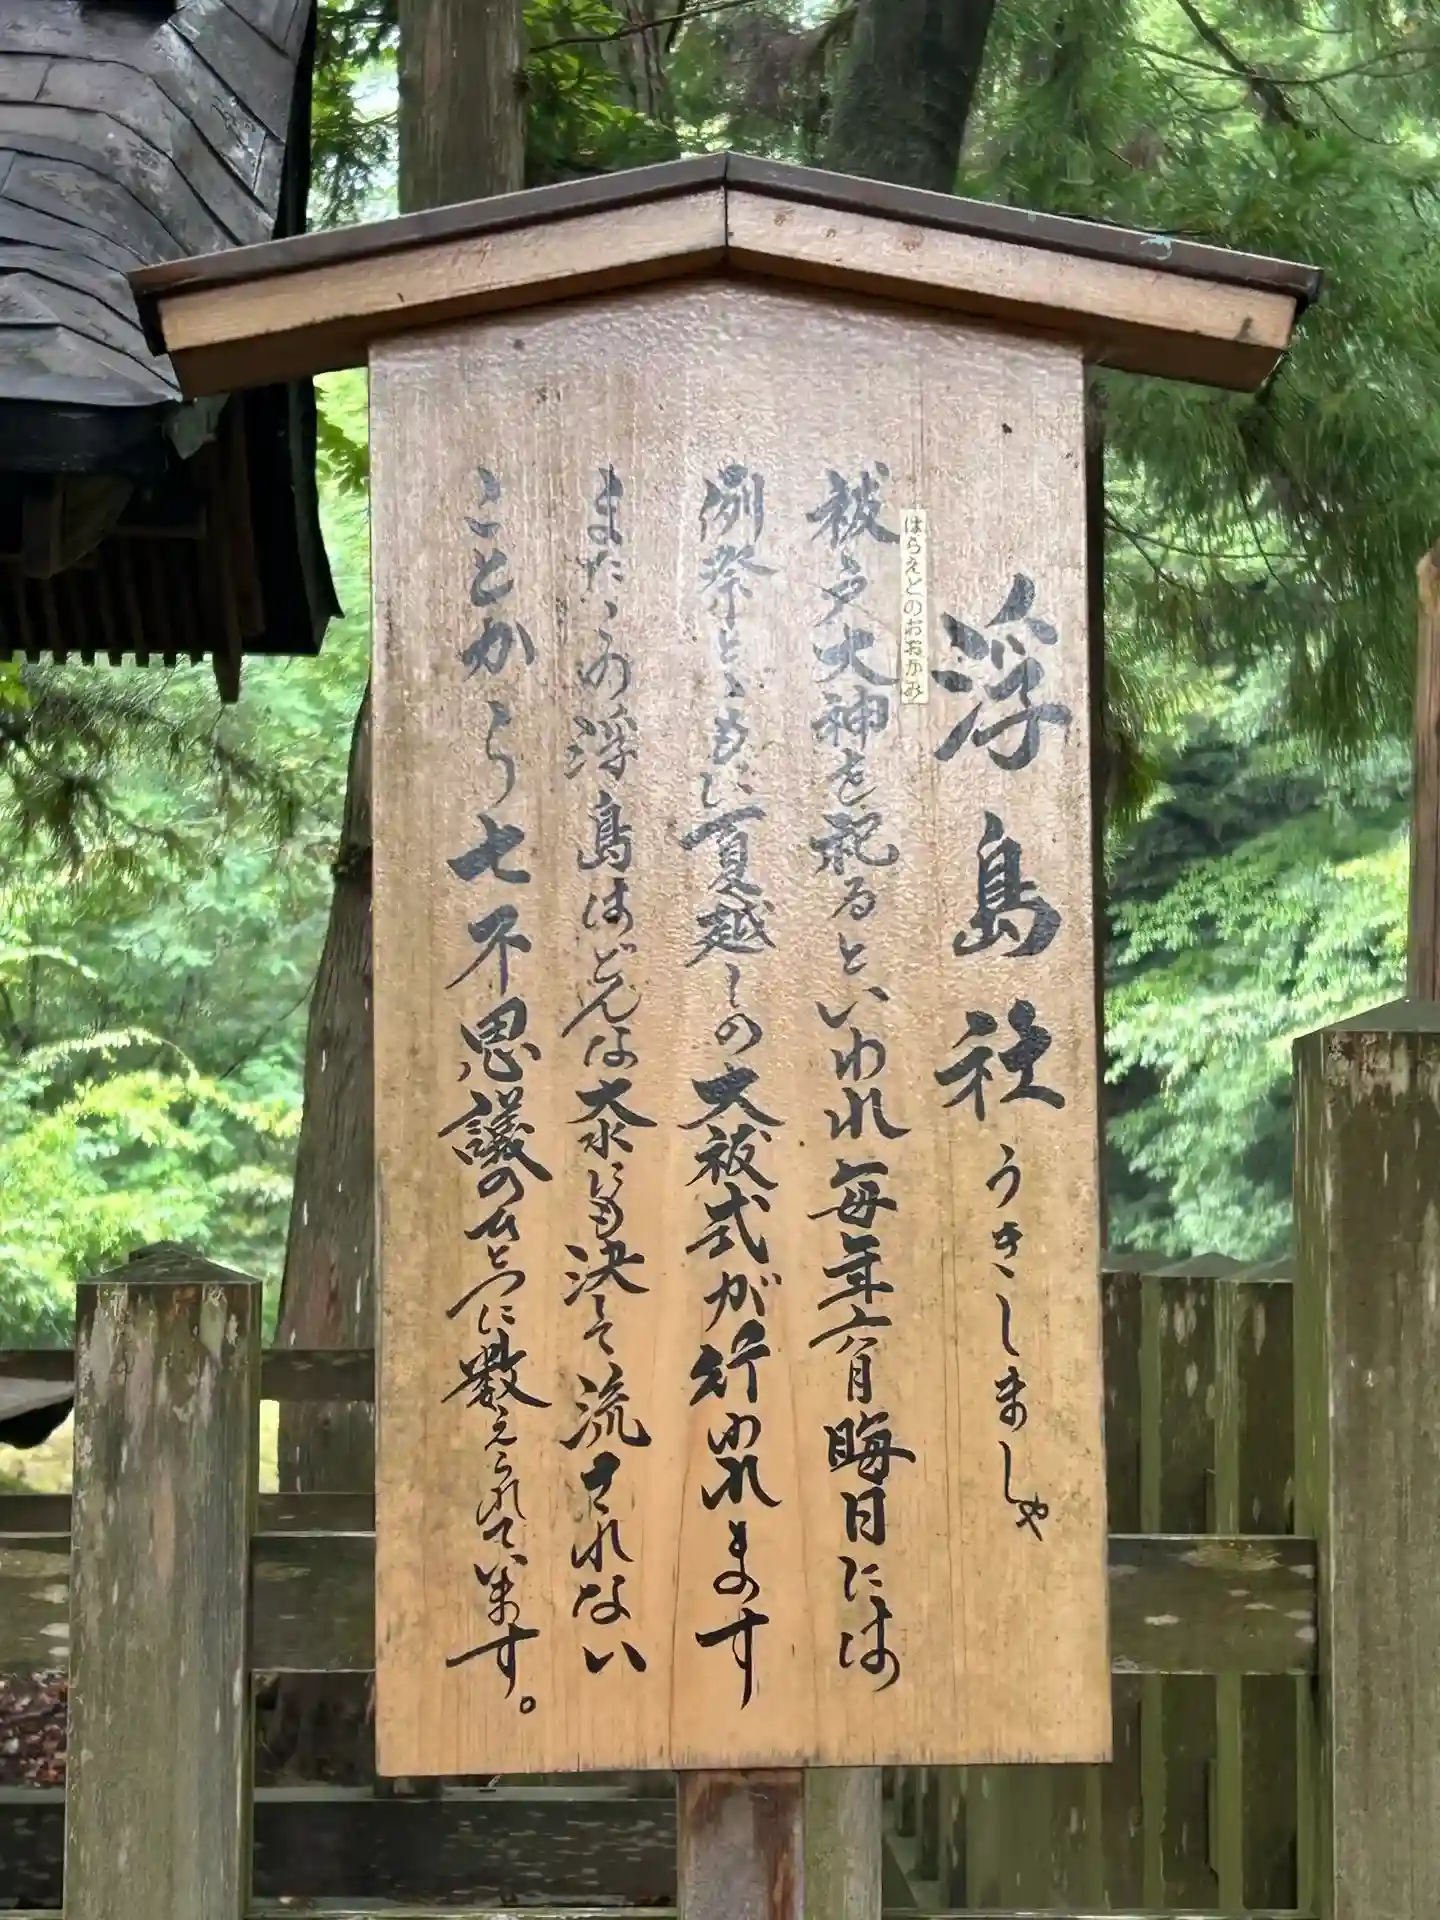 浮島社 うきしましゃ
はらえどのおおかみ
祓戸大神を祀るといわれ毎年六月晦日には
例祭とゝもに夏越しの大祓式が行われます
またこの浮島はどんな大水にも決して流されない
ことから七不思議のひとつに数えられています。